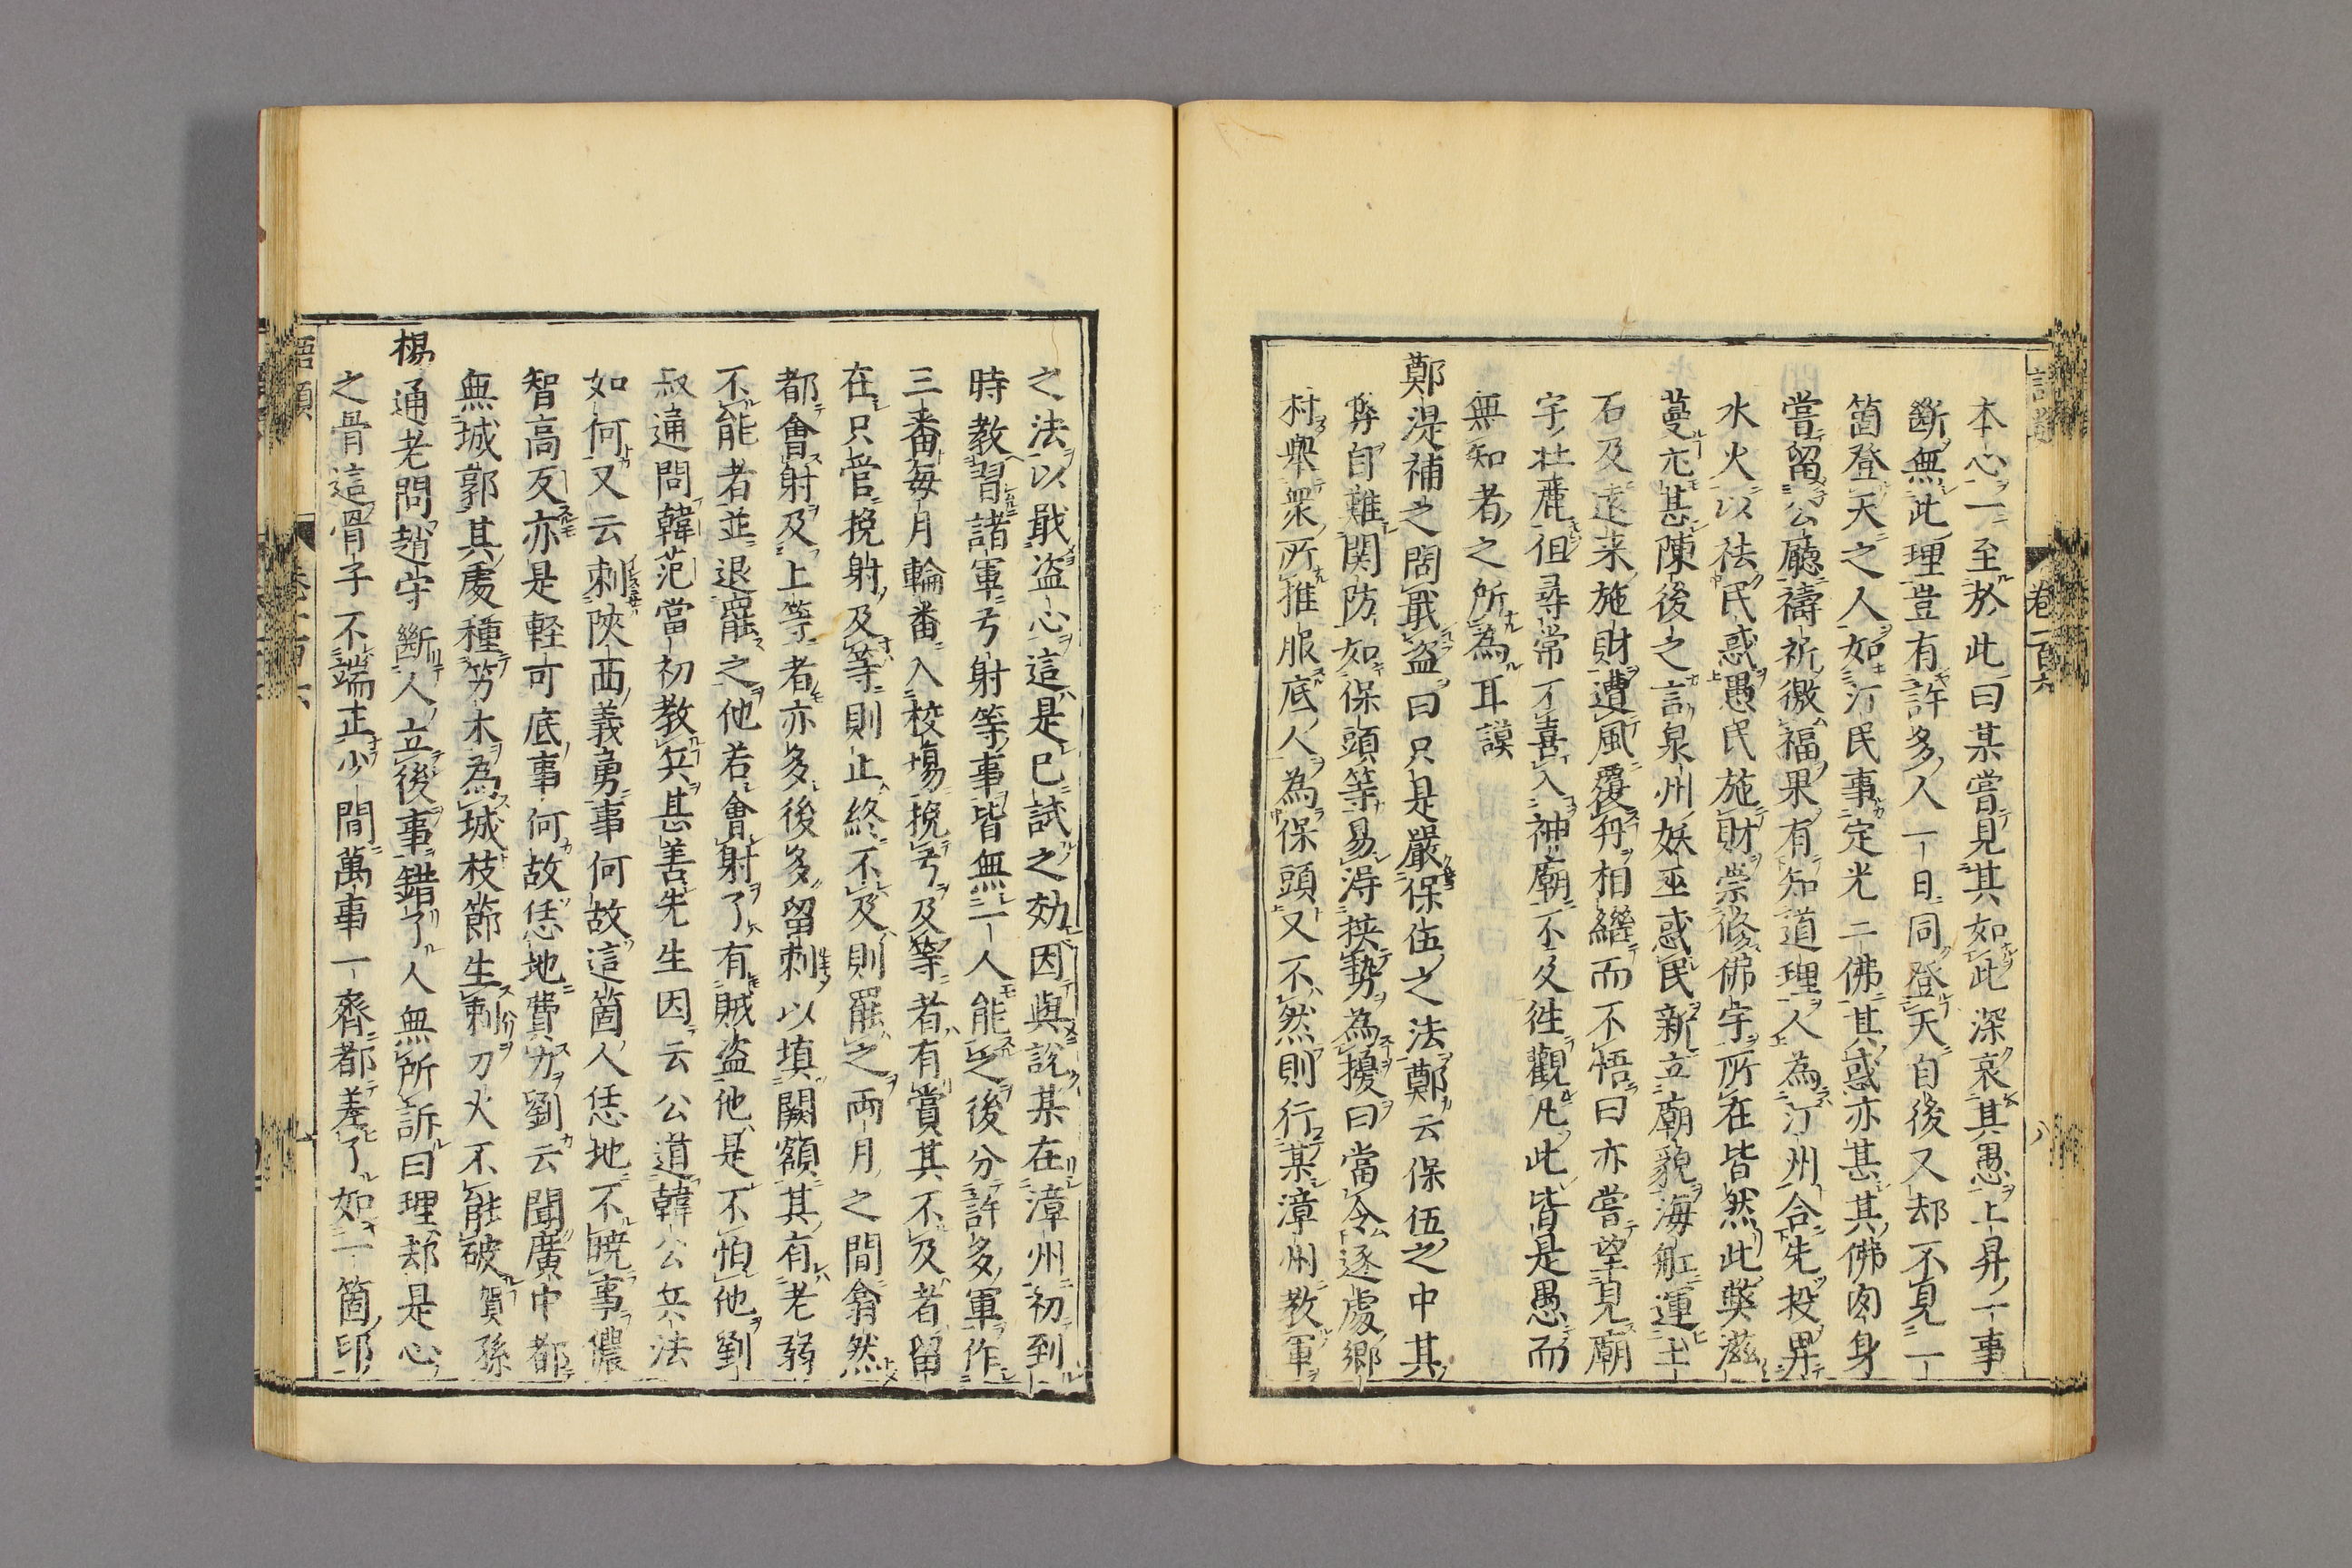 語類 卷一百六 八
本心一至於此曰某嘗見其如此深哀其愚上昇一事
斷無此理豈有許多人一日同登天自後又却不見一
箇登天之人如汀民事定光二佛其惑亦甚其佛肉身
嘗留公廳禱祈徼福果有知道理人為汀州合先投畀
水火以祛民惑愚民施財崇修佛宇所在皆然此弊滋
蔓尤甚陳後之言泉州妖巫惑民新立廟貌海舡運土
石及遠来施財遭風覆舟相繼而不悟曰亦嘗望見廟
宇壯麗但尋常不喜入神廟不及徃觀凡此皆是愚而
無知者之所為耳謨
鄭湜補之問戢盗曰只是嚴保伍之法鄭云保伍之中其
弊自難関防如保頭等易得挟勢為擾曰當令逐處郷
村舉衆所推服底人為保頭又不然則行某漳州教軍
之法以戢盗心這是已試之効因與說某在漳州初到
時教習諸軍弓射等事皆無一人能之後分許多軍作
三番每月輪番入校場挽弓及等者有賞其不及者留
在只管挽射及等則止終不及則罷之兩月之間翕然
都會射及上等者亦多後多留刺以填闕額其有老弱
不能者並退罷之他若會射了有賊盗他是不怕他劉
叔通問韓范當初教兵甚善先生因云公道韓公兵法
如何又云刺陜西義勇事何故這箇人恁地不暁事儂
智高反亦是軽可底事何故恁地費力劉云聞廣中都
無城郭其處種竻木為城枝節生刺刀火不能破賀孫
楊通老問趙守斷人立後事錯了人無所訴曰理却是心
之骨這骨子不端正少間萬事一齊都差了如一箇印
語類 卷一百六